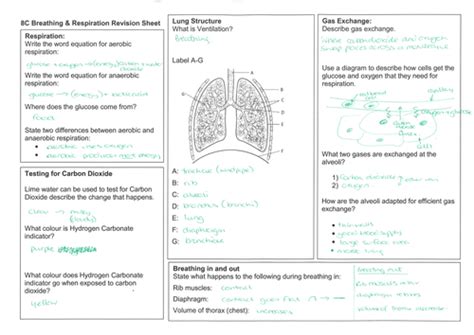 8C Breathing & Respiration Revision Sheet
Respiration:
Write the word equation for aerobic
respiration:
glucose + oxygen → (energy)
Write the word equation for anaerobic
respiration:
glucose → (energy) +
Where does the glucose come from?
food
State two differences between aerobic and
anaerobic respiration:
• aerobic uses oxygen
• aerobic produces more energy
Testing for Carbon Dioxide
Lime water can be used to test for Carbon
Dioxide describe the change that happens.
clear → milky
(cloudy)
What colour is Hydrogen Carbonate
indicator?
purple
What colour does Hydrogen Carbonate
indicator go when exposed to carbon
dioxide?
yellow
Lung Structure
What is Ventilation?
Breathing
Label A-G
A
B
C
D
E
F
G
A: trachea (windpipe)
B: rib
C: alveoli
D: bronchus (bronchi)
E: lung
F: diaphragm
G: bronchiole
Gas Exchange:
Describe gas exchange.
where carbon dioxide and oxygen
across a membrane
Use a diagram to describe how cells get the
glucose and oxygen that they need for
respiration.
capillary
What two gases are exchanged at the
alveoli?
1) carbon dioxide
2) oxygen
How are the alveoli adapted for efficient gas
exchange?
• thin walls
• good blood supply
• large surface area
• moist
Breathing in and out
State what happens to the following during breathing in:
Rib muscles: contract
Diaphragm: contract goes flat
Volume of thorax (chest): increases
Breathing out
rib muscles relax
diaphragm relaxes